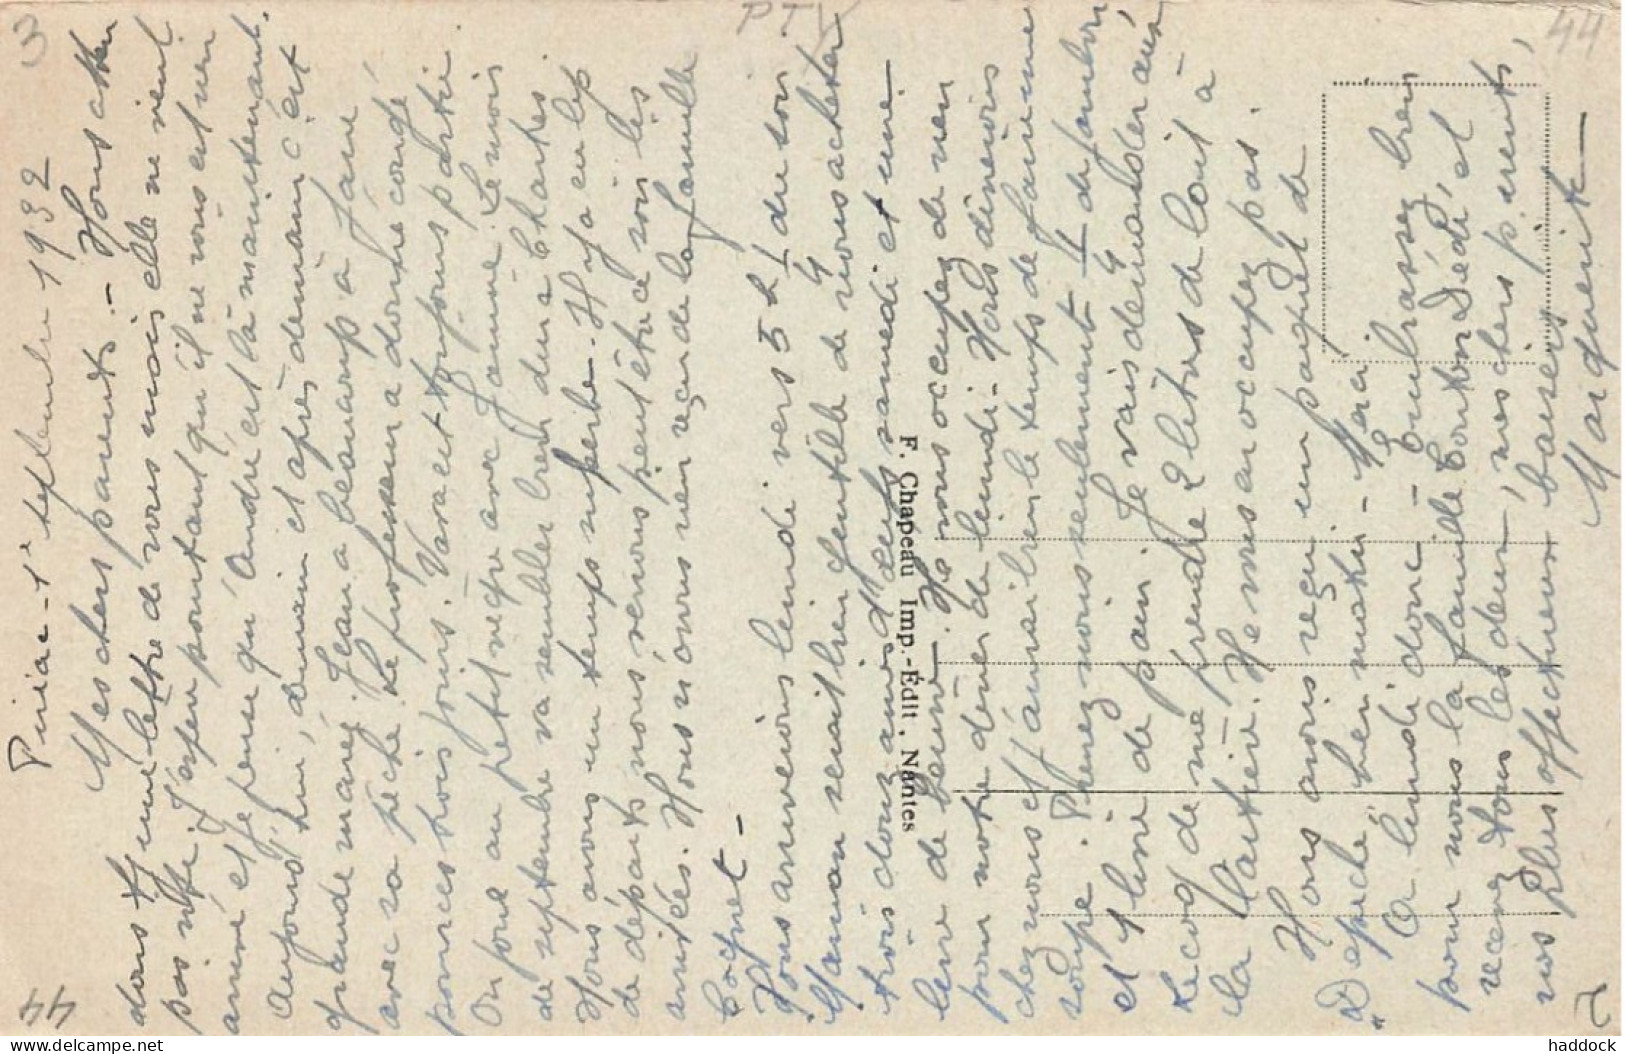 Piriac - 1er septembre 1932
Mes chers parents. - Nous atten
dons
une lettre de vous mais elle ne vient
pas vite; J'espère pourtant qu'il ne vous est rien
arrivé et je pense qu'André est là maintenant.
Aujourd'hui, demain et après demain c'est
grande marée. Jean a beaucoup à faire
avec sa pêche. Le professeur a donné congé
pour ces trois jours. Vava est toujours partie.
On joue au petit nègre avec Jeannine. Le mois
de septembre va sembler bien dur à Chartes.
Nous avons un temps superbe. Il y a eu bcp
de départs nous serons peut être ce soir les
amitiés. Nous n'avons rien reçu de la famille
Coquet -
Nous arriverons lundi vers 5 h 1/4 du soir
Maman serait bien gentille de nous acheter
trois douzaines d'œufs samedi et une
livre de beurre. Ne vous occupez de rien
pour notre dîner de lundi. Nous dînerons
chez nous et j'aurai bien le temps de faire une
soupe. Prenez nous seulement 1/4 de jambon
et 1 livre de pain. Je vais demander aux
Lecoq de me prendre 2 litres de lait à
la laitière. Ne vous en occupez pas.
Nous avons reçu un paquet de
"Dépêche" hier matin. Merci.
A lundi donc - Embrassez bien
pour nous la famille Tonton Dédé, et
recevez tous les deux, mes chers parents,
nos plus affectueux baisers
Marguerite
F. Chapeau Imp.-Édit., Nantes
PTV
3
44
44
2
delcampe.net
haddock